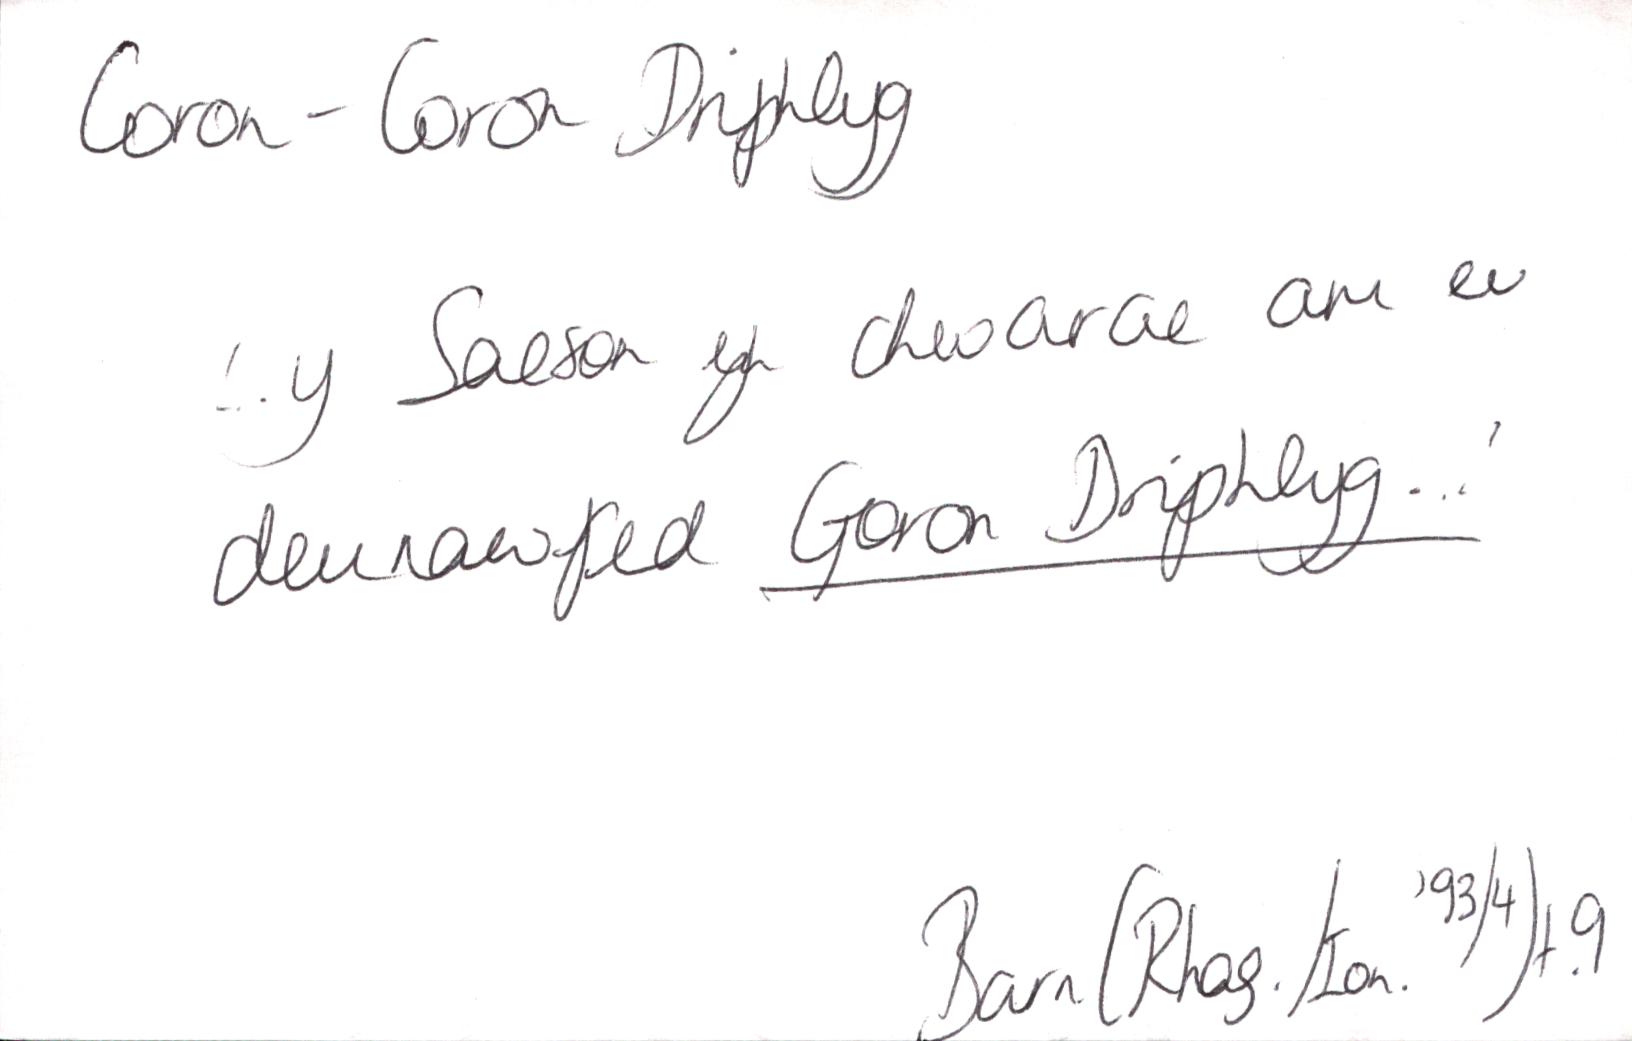 Coron - Coron Driphlyg
'..y Saeson yn chwarae am eu
deunawfed Goron Driphlyg...'
Barn (Rhag./Ion. '93/4) t.9